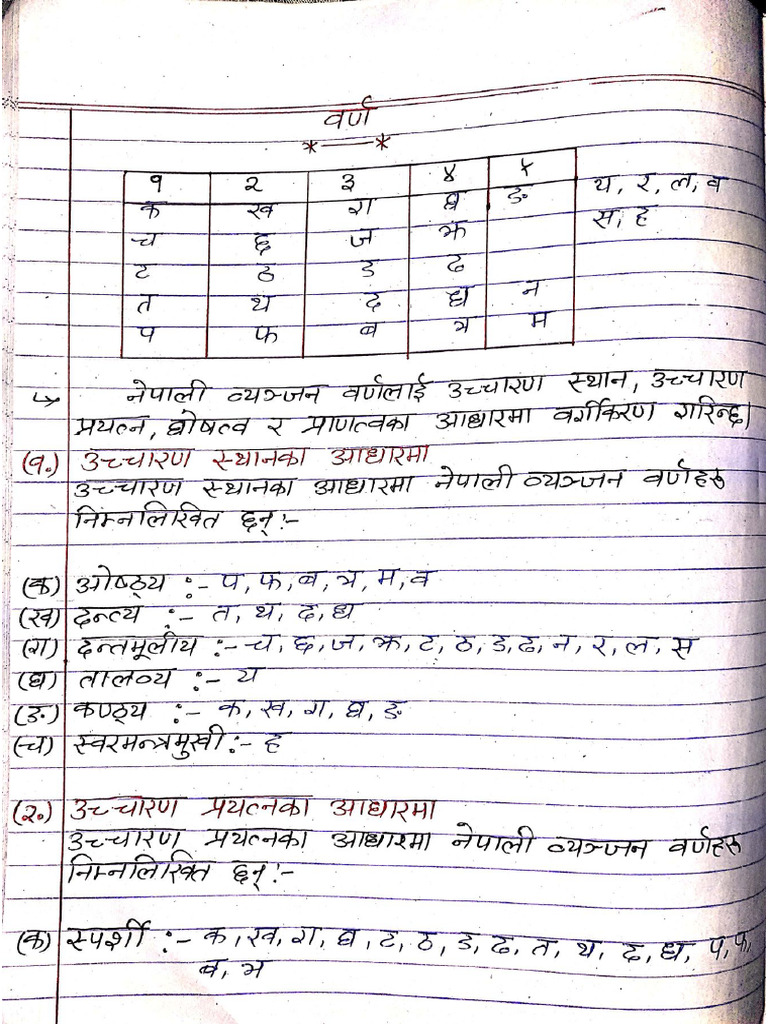 वर्ण
*——*
१ २ ३ ४ ५
क ख ग घ ङ य, र, ल, व
च छ ज झ स, ह
ट ठ ड ढ
त थ द ध न
प फ ब भ म
↳ नेपाली व्यञ्जन वर्णलाई उच्चारण स्थान, उच्चारण
प्रयत्न, घोषत्व र प्राणत्वका आधारमा वर्गीकरण गरिन्छ।
(१.) उच्चारण स्थानका आधारमा
उच्चारण स्थानका आधारमा नेपाली व्यञ्जन वर्णहरू
निम्नलिखित छन् :-
(क) ओष्ठ्य :- प, फ, ब, भ, म, व
(ख) दन्त्य :- त, थ, द, ध
(ग) दन्तमूलीय :- च, छ, ज, झ, ट, ठ, ड, ढ, न, र, ल, स
(घ) तालव्य :- य
(ङ) कण्ठ्य :- क, ख, ग, घ, ङ
(च) स्वरमन्त्रमुखी :- ह
(२.) उच्चारण प्रयत्नका आधारमा
उच्चारण प्रयत्नका आधारमा नेपाली व्यञ्जन वर्णहरू
निम्नलिखित छन् :-
(क) स्पर्शी :- क, ख, ग, घ, ट, ठ, ड, ढ, त, थ, द, ध, प, फ,
ब, भ